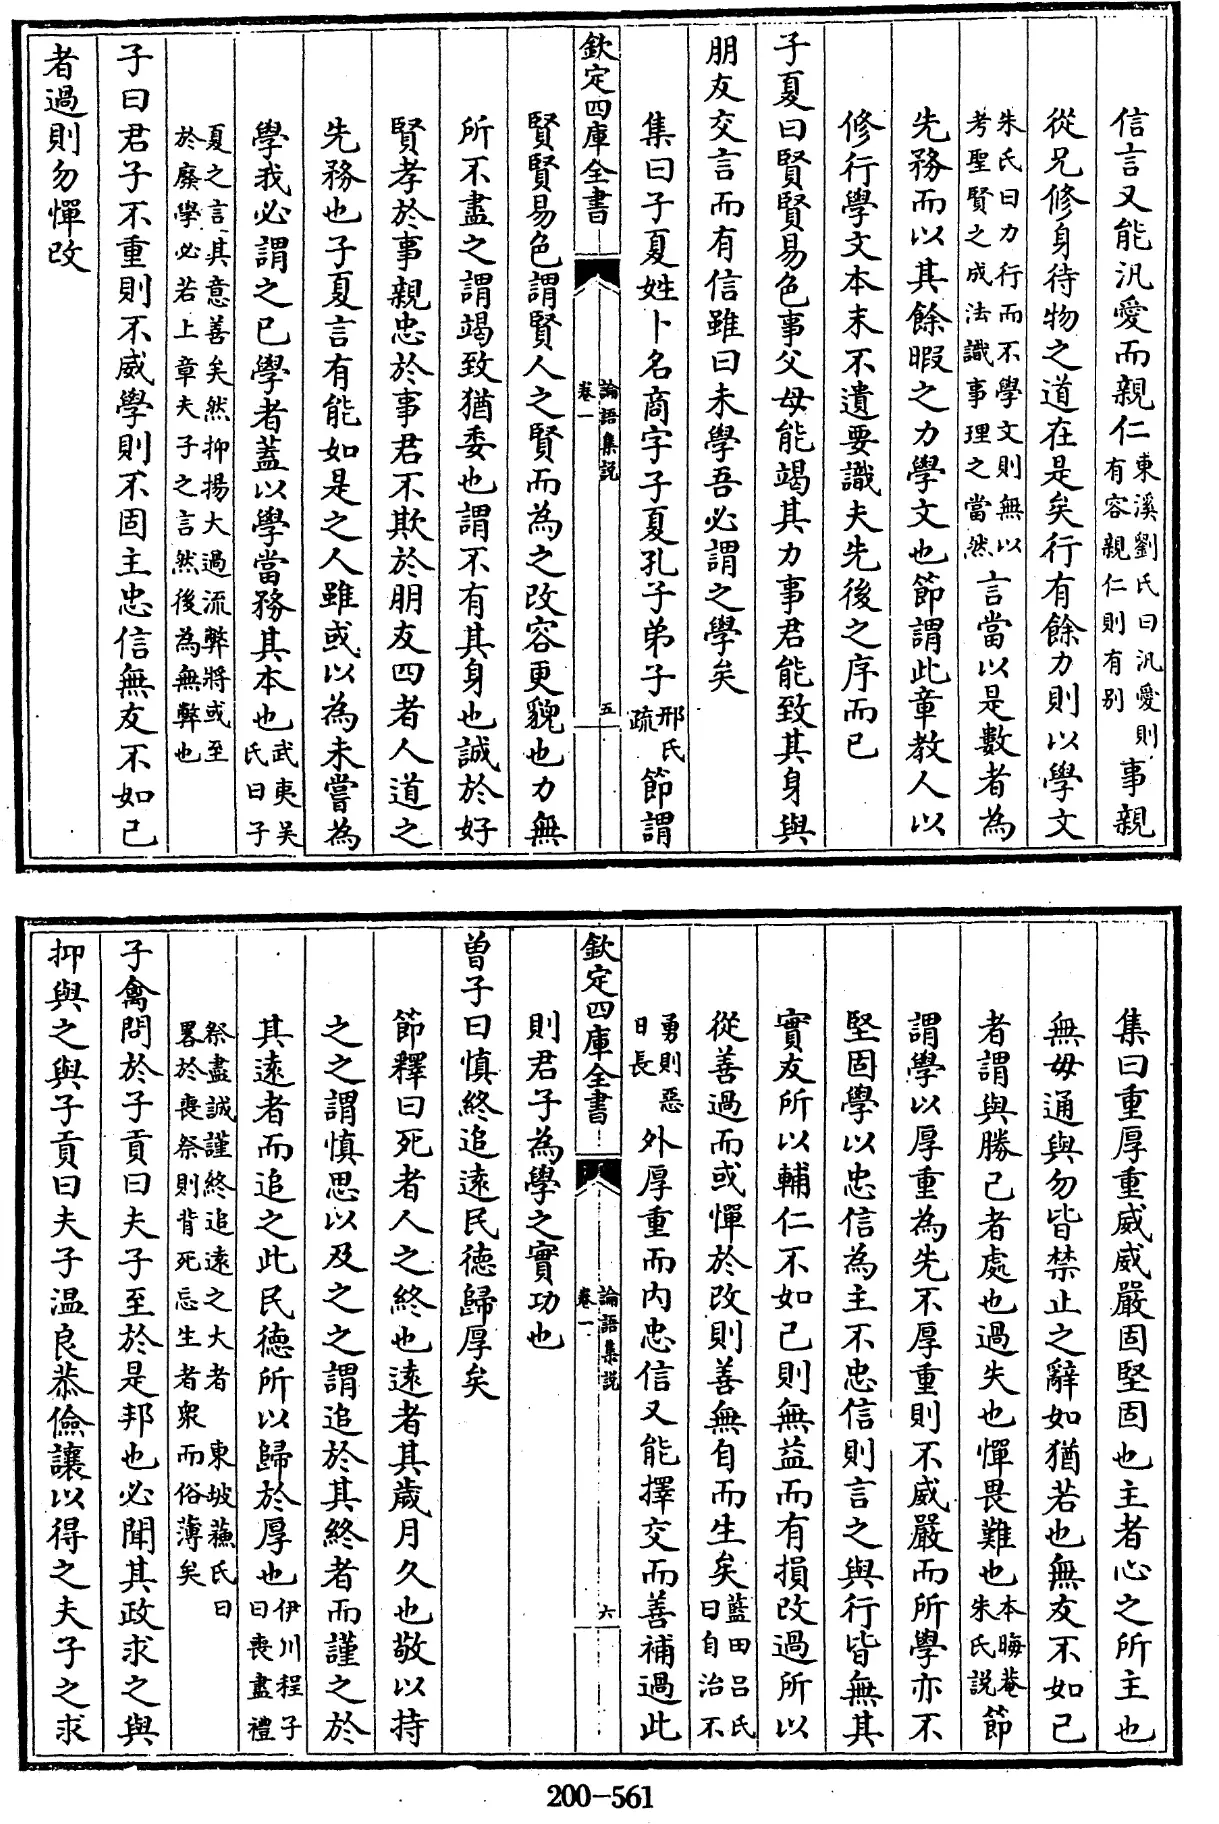 信言又能汎愛而親仁東溪劉氏曰汎愛則有容親仁則有别事親
從兄修身待物之道在是矣行有餘力則以學文
朱氏曰力行而不學文則無以考聖賢之成法識事理之當然言當以是數者為
先務而以其餘暇之力學文也節謂此章教人以
修行學文本末不遺要識夫先後之序而已
子夏曰賢賢易色事父母能竭其力事君能致其身與
朋友交言而有信雖曰未學吾必謂之學矣
集曰子夏姓卜名商字子夏孔子弟子邢氏疏節謂
欽定四庫全書
論語集説
卷一
五
賢賢易色謂賢人之賢而為之改容更貌也力無
所不盡之謂竭致猶委也謂不有其身也誠於好
賢孝於事親忠於事君不欺於朋友四者人道之
先務也子夏言有能如是之人雖或以為未嘗為
學我必謂之已學者蓋以學當務其本也武夷吳氏曰子
夏之言其意善矣然抑揚大過流弊將或至於廢學必若上章夫子之言然後為無弊也
子曰君子不重則不威學則不固主忠信無友不如己
者過則勿憚改
集曰重厚重威威嚴固堅固也主者心之所主也
無毋通與勿皆禁止之辭如猶若也無友不如己
者謂與勝己者處也過失也憚畏難也本晦菴朱氏説節
謂學以厚重為先不厚重則不威嚴而所學亦不
堅固學以忠信為主不忠信則言之與行皆無其
實友所以輔仁不如己則無益而有損改過所以
從善過而或憚於改則善無自而生矣藍田呂氏曰自治不
勇則惡日長外厚重而内忠信又能擇交而善補過此
欽定四庫全書
論語集説
卷一
六
則君子為學之實功也
曽子曰慎終追遠民德歸厚矣
節釋曰死者人之終也遠者其歲月久也敬以持
之之謂慎思以及之之謂追於其終者而謹之於
其遠者而追之此民德所以歸於厚也伊川程子曰喪盡禮
祭盡誠謹終追遠之大者　東坡蘓氏曰畧於喪祭則背死忘生者衆而俗薄矣
子禽問於子貢曰夫子至於是邦也必聞其政求之與
抑與之與子貢曰夫子温良恭儉讓以得之夫子之求
200-561